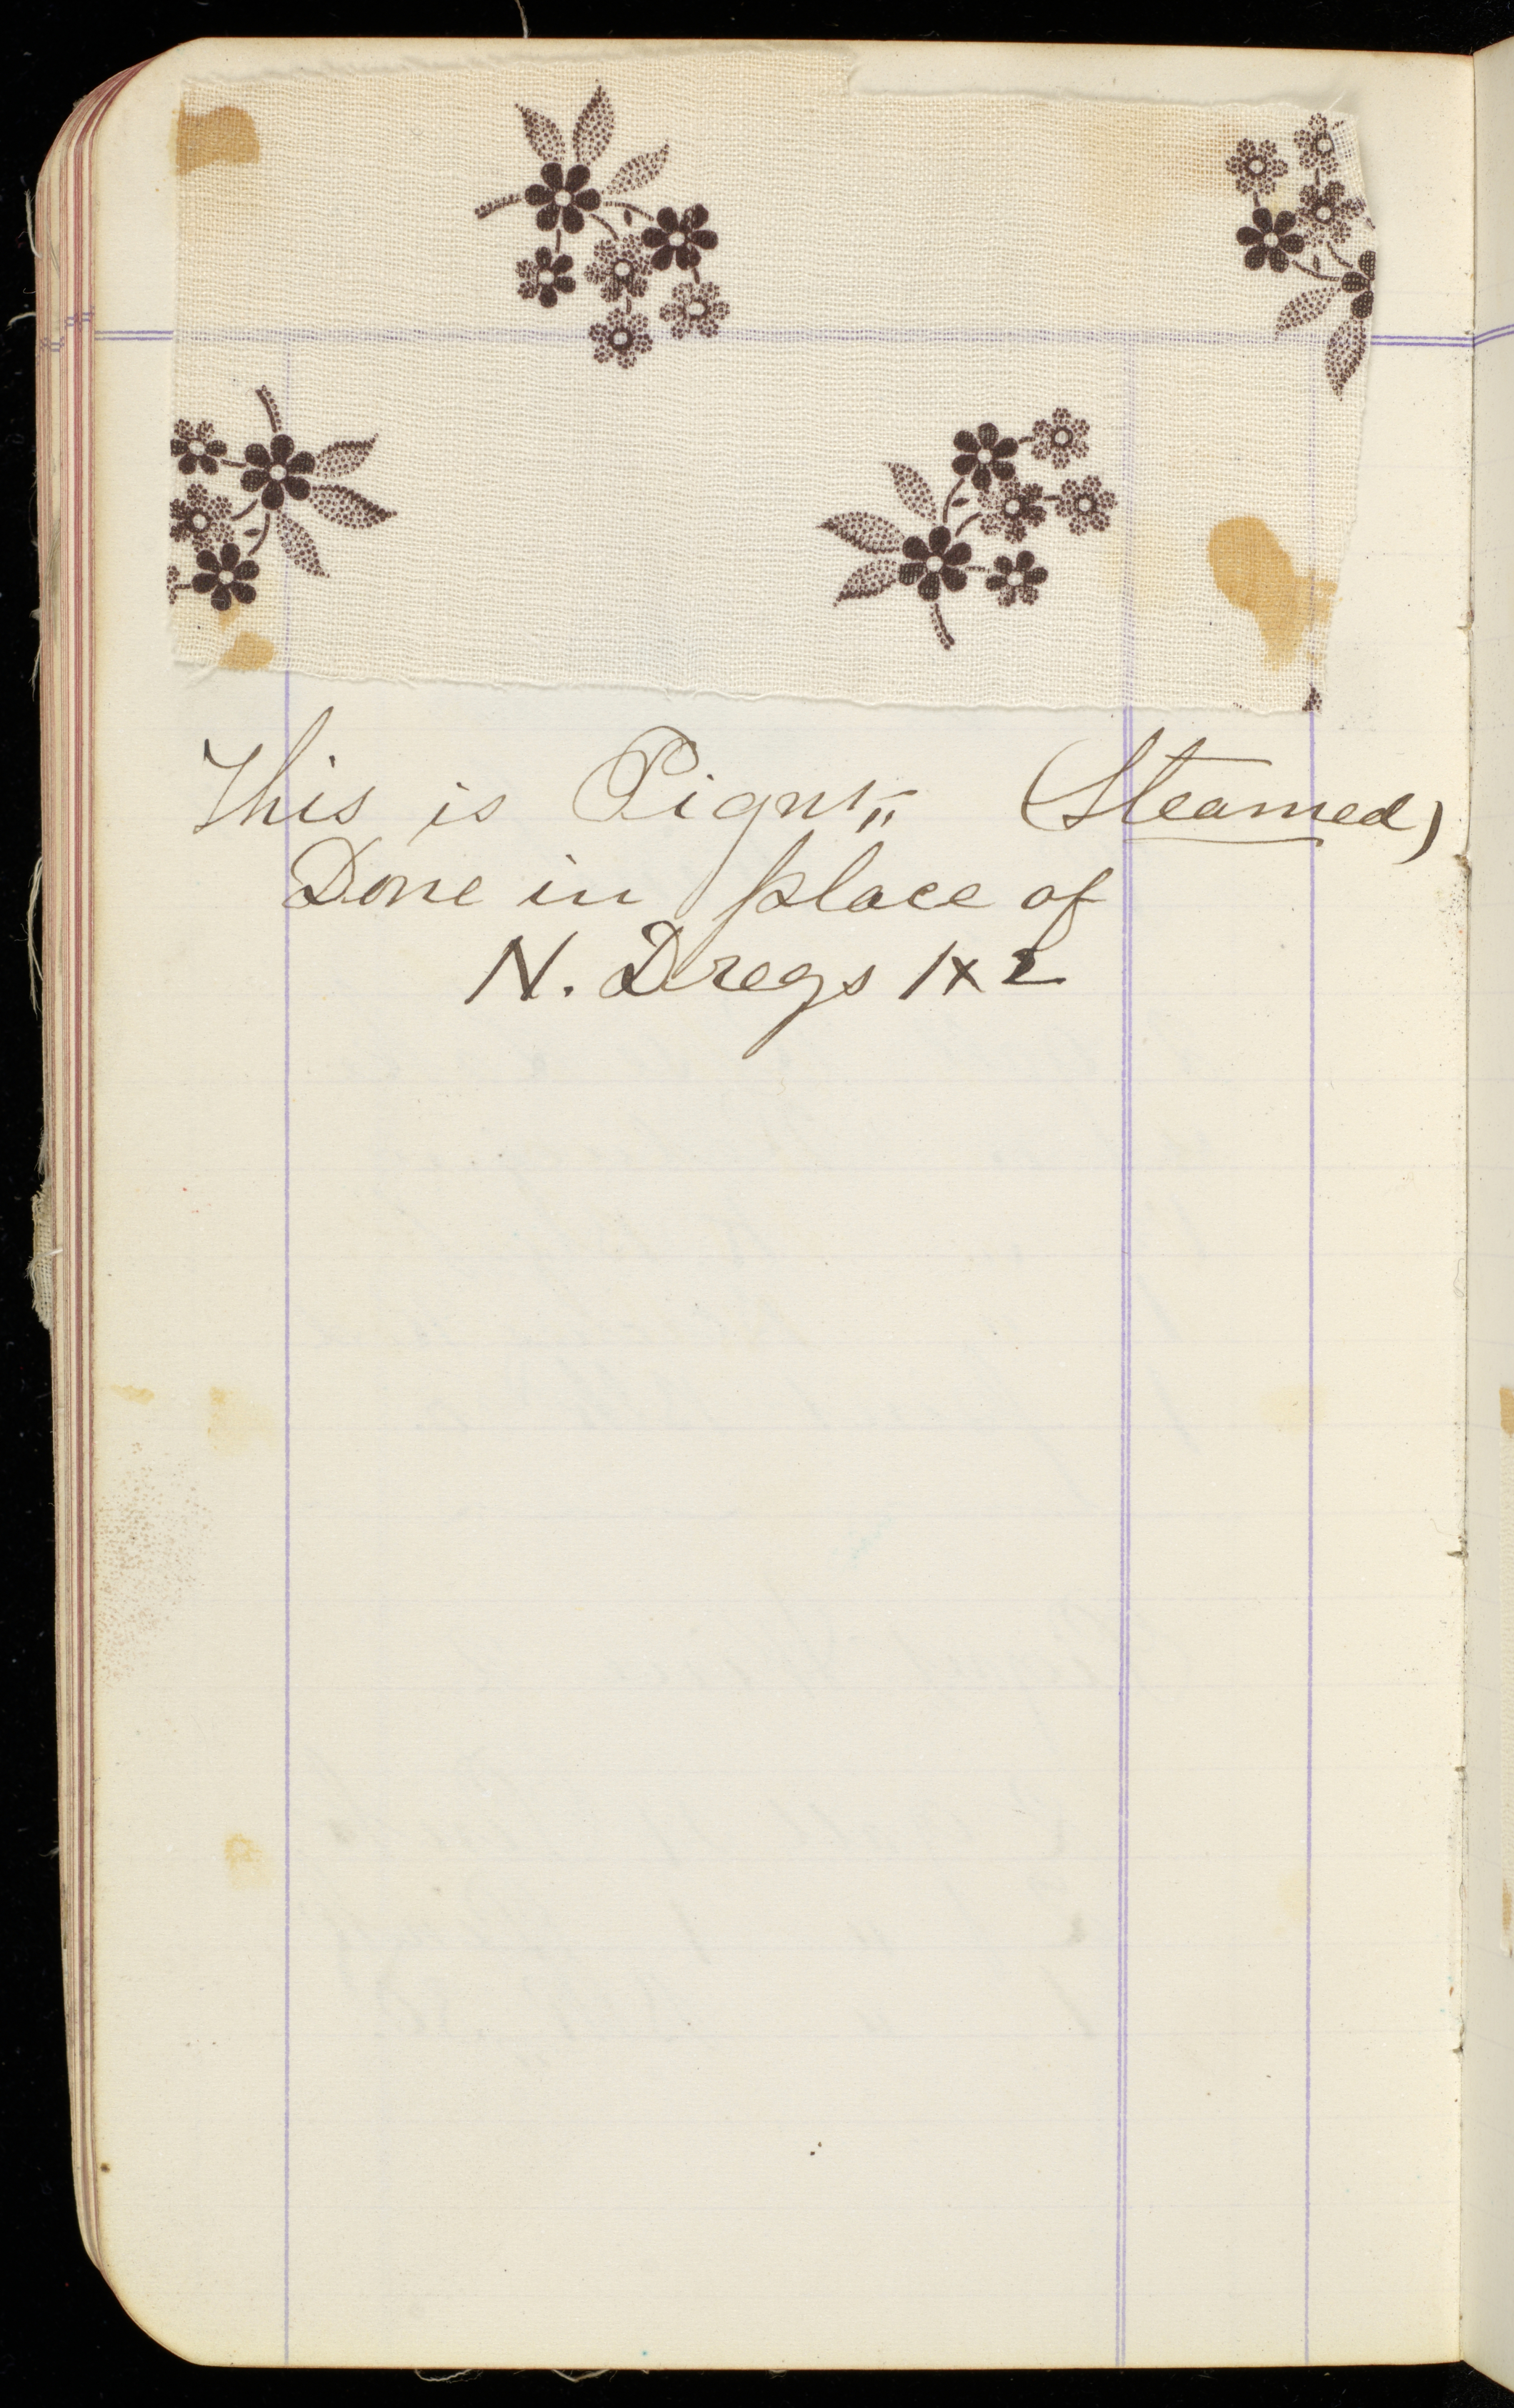 This is Pigmt„ (Steamed)
Done in place of
N. Dregs 1x2